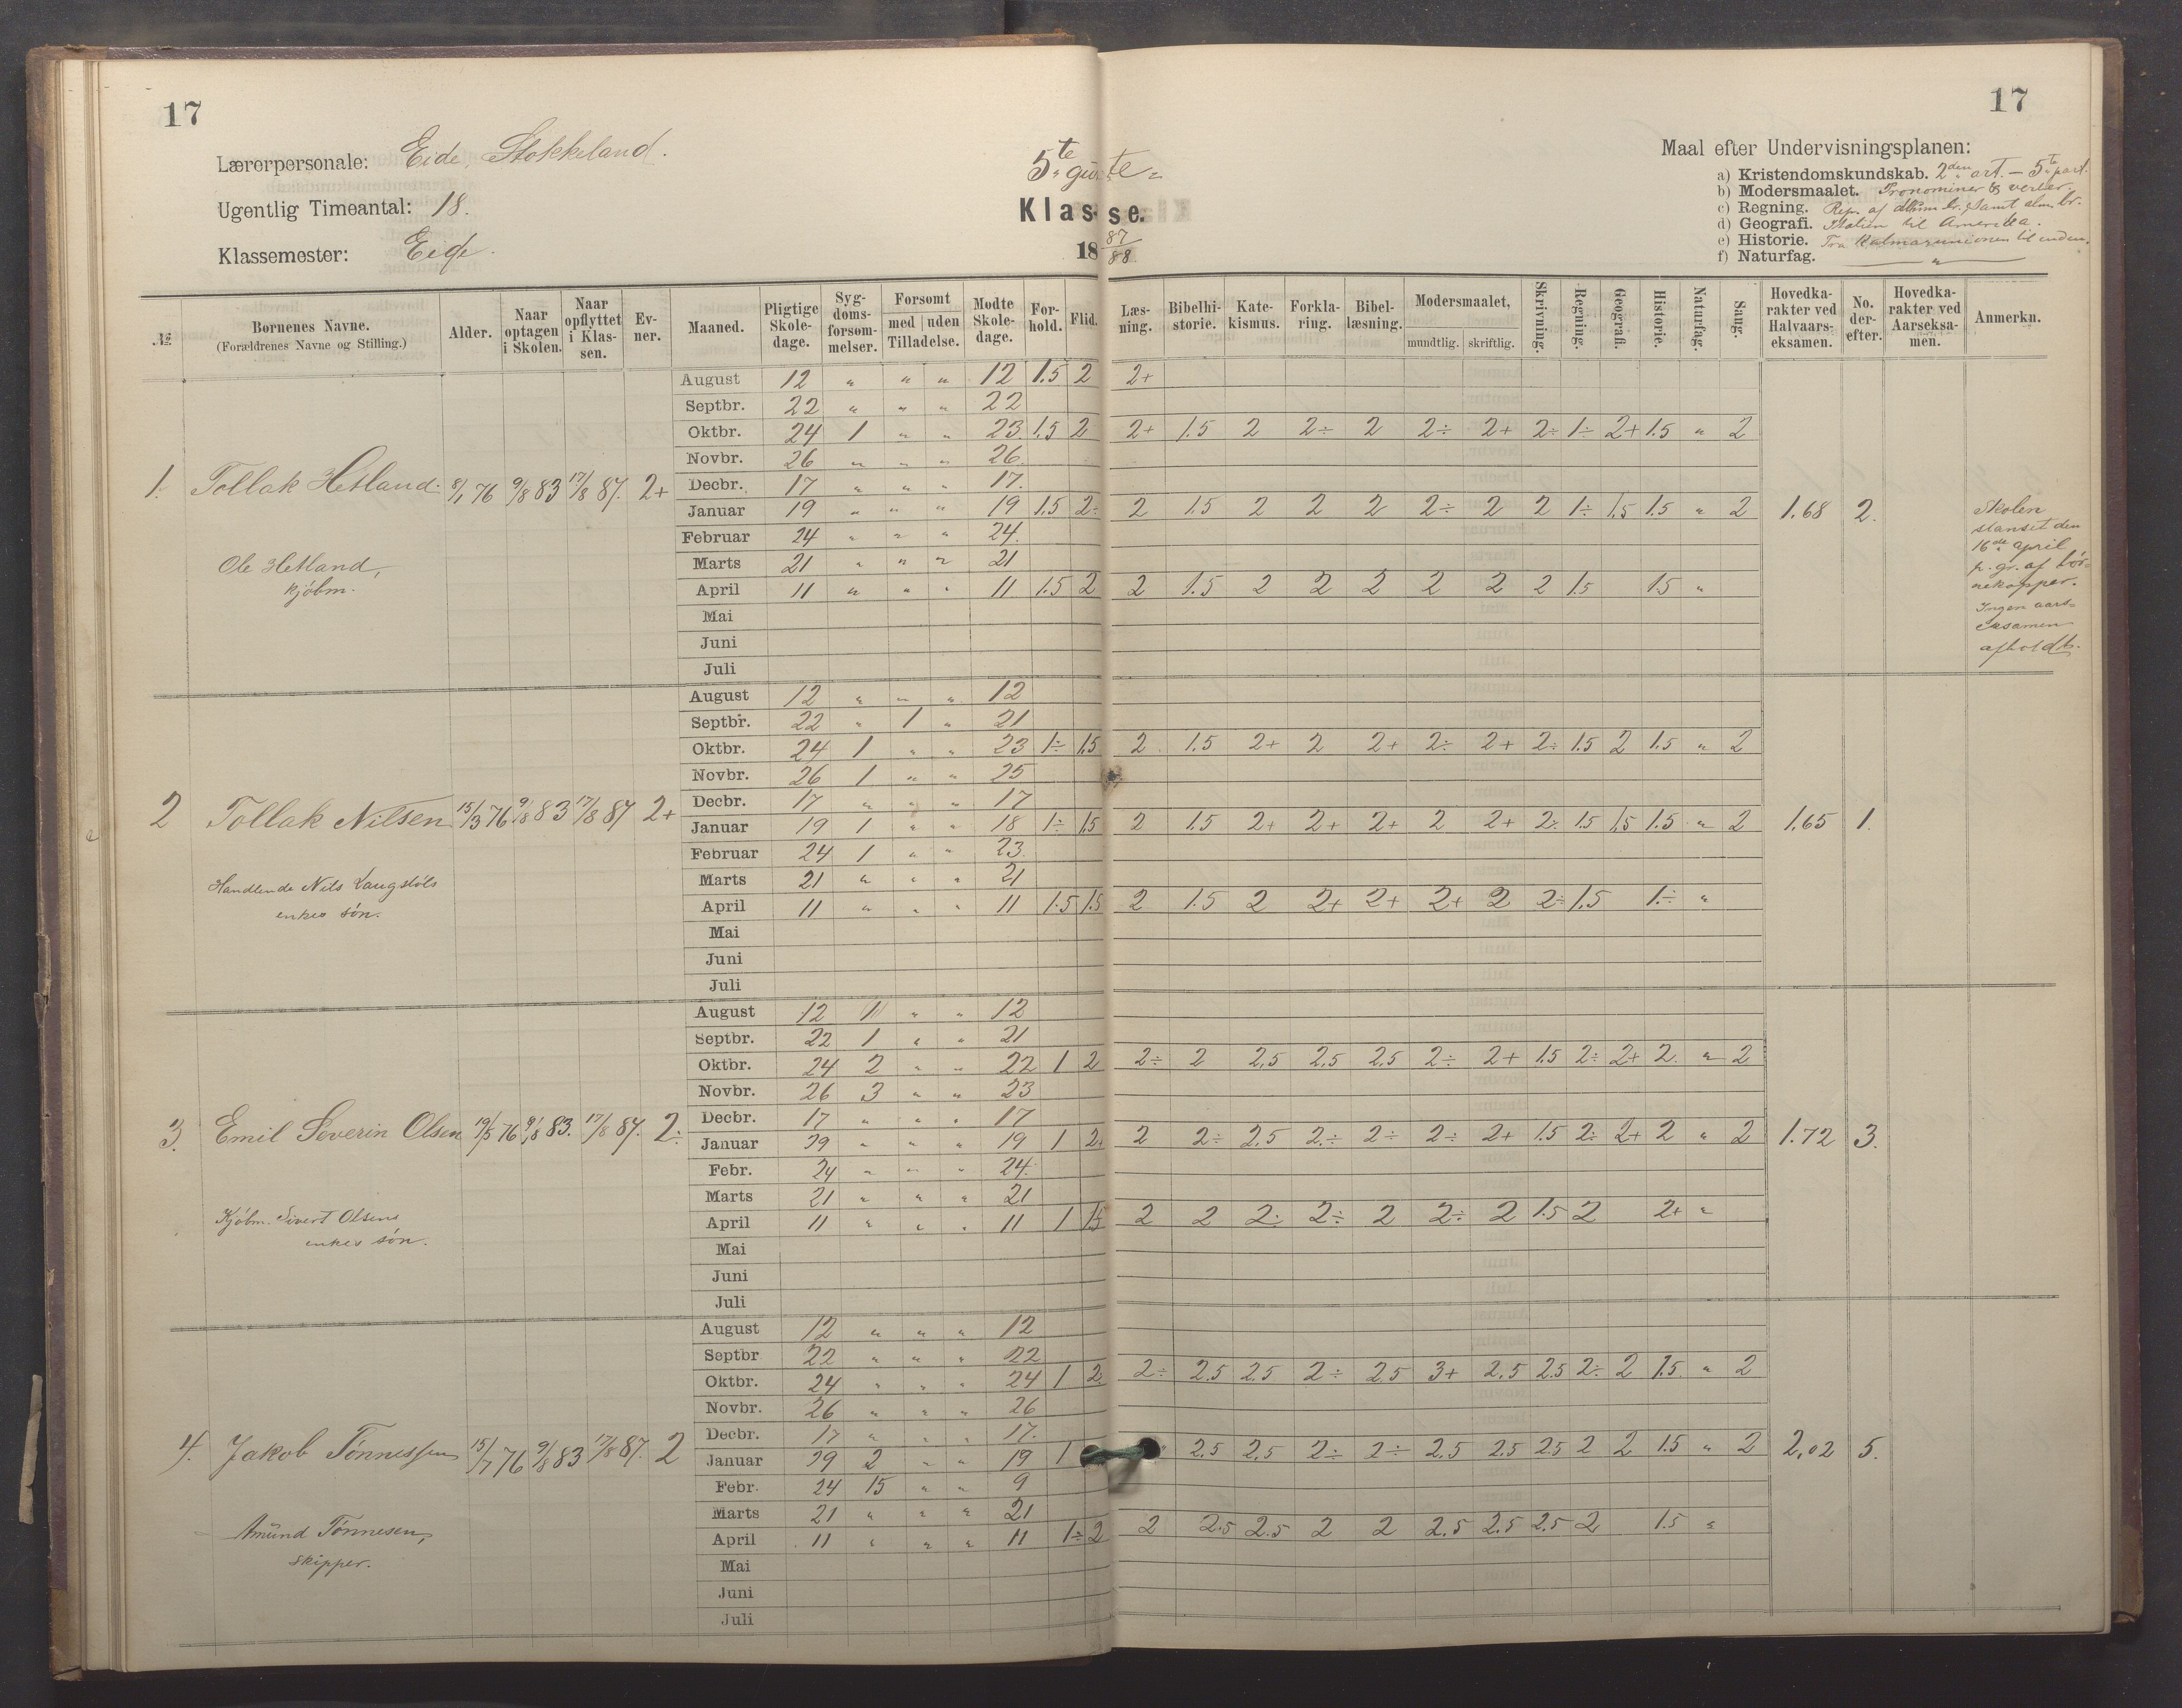 17
17
Lærerpersonale: Eide, Stokkeland.
Ugentlig Timeantal: 18.
Klassemester: Eide.
5te gutte
Klasse.
18 87/88
Maal efter Undervisningsplanen:
a) Kristendomskundskab. 2den art. – 5te part.
b) Modersmaalet. Pronominer & verber.
c) Regning. Rep. af samt alm. br.
d) Geografi. Italien til Amerika.
e) Historie. Fra Kalmarunionen til enden.
f) Naturfag. — " —
№ Børnenes Navne. (Forældrenes Navne og Stilling.) Alder. Naar optagen i Skolen. Naar opflyttet i Klassen. Evner. Maaned. Pligtige Skoledage. Sygdomsforsømmelser. Forsømt med | uden Tilladelse. Mødte Skoledage. Forhold. Flid. Læsning. Bibelhistorie. Katekismus. Forklaring. Bibellæsning. Modersmaalet, mundtlig. skriftlig. Skrivning. Regning. Geografi. Historie. Naturfag. Sang. Hovedkarakter ved Halvaarseksamen. No. derefter. Hovedkarakter ved Aarseksamen. Anmerkn.
1. Tollak Hetland. 8/1 76 9/8 83 17/8 87. 2+
Ole Hetland,
kjøbm.
August 12 " " " 12 1.5 2 2+
Septbr. 22 " " " 22
Oktbr. 24 1 " " 23. 1.5 2 2+ 1.5 2 2÷ 2 2÷ 2+ 2÷ 1÷ 2+ 1.5 " 2
Novbr. 26 " " " 26.
Decbr. 17 " " " 17.
Januar 19 " " " 19 1.5 2÷ 2 1.5 2 2 2 2÷ 2 2 1÷ 1.5 1.5 " 2 1.68 2.
Februar 24 " " " 24.
Marts 21 " " " 21
April 11 " " " 11 1.5 2 2 1.5 2 2 2 2 2 2 1.5 1.5 "
Mai
Juni
Juli
Skolen
stanset den
16de april
p. gr. af bør-
nekopper.
Ingen aars-
eksamen
afholdt.
2 Tollak Nilsen 15/3 76 9/8 83 17/8 87 2+
Handlende Nils Laugsløls
enkes søn.
August 12 " " " 12
Septbr. 22 " 1 " 21
Oktbr. 24 1 " " 23 1÷ 1.5 2 1.5 2+ 2 2+ 2÷ 2+ 2÷ 1.5 2 1.5 " 2
Novbr. 26 1 " " 25
Decbr. 17 " " " 17
Januar 19 1 " " 18 1÷ 1.5 2 1.5 2+ 2+ 2+ 2 2+ 2÷ 1.5 1.5 1.5 " 2 1.65 1.
Februar 24 1 " " 23.
Marts 21 " " " 21
April 11 " " " 11 1.5 1.5 2 1.5 2 2+ 2+ 2+ 2 2÷ 1.5 1÷ "
Mai
Juni
Juli
3. Emil Severin Olsen 19/5 76 9/8 83. 17/8 87. 2÷
Kjøbm. Sivert Olsens
enkes søn.
August 12 " " 12
Septbr. 22 1 " " 21
Oktbr. 24 2 " " 22 1 2 2÷ 2 2.5 2.5 2.5 2÷ 2+ 1.5 2÷ 2+ 2. " 2
Novbr. 26 3 " " 23
Decbr. 17 " " " 17
Januar 19 " " " 19 1 2+ 2 2÷ 2.5 2÷ 2÷ 2÷ 2+ 1.5 2÷ 2+ 2 " 2 1.72 3.
Febr. 24 " " " 24.
Marts 21 " " " 21
April 11 " " " 11 1 1.5 2 2 2÷ 2÷ 2 2÷ 2 1.5 2 2+ "
Mai
Juni
Juli
4. Jakob Tønnessen 15/7 76 9/8 83 17/8 87. 2
Amund Tønnesen,
skipper.
August 12 " " " 12
Septbr 22 " " " 22
Oktbr. 24 " " " 24 1 2÷ 2÷ 2.5 2.5 2÷ 2.5 3+ 2.5 2.5 2÷ 2 1.5 " 2
Novbr. 26 " " " 26
Decbr. 17 " " " 17.
Januar 19 2 " " 19 1 2.5 2.5 2÷ 2÷ 2.5 2.5 2.5 2 2 1.5 " 2 2,02 5.
Febr. 24 15 " " 9
Marts 21 " " " 21
April 11 " " " 11 1÷ 2 2 2.5 2.5 2 2 2.5 2.5 2.5 2 1.5 "
Mai
Juni
Juli